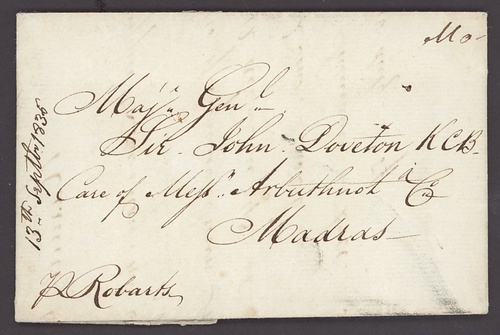 Majr. Genl.
Sir John Doveton KCB.
Care of Messrs. Arbuthnot & Co
Madras
pr Robarts
13th Septbr 1836